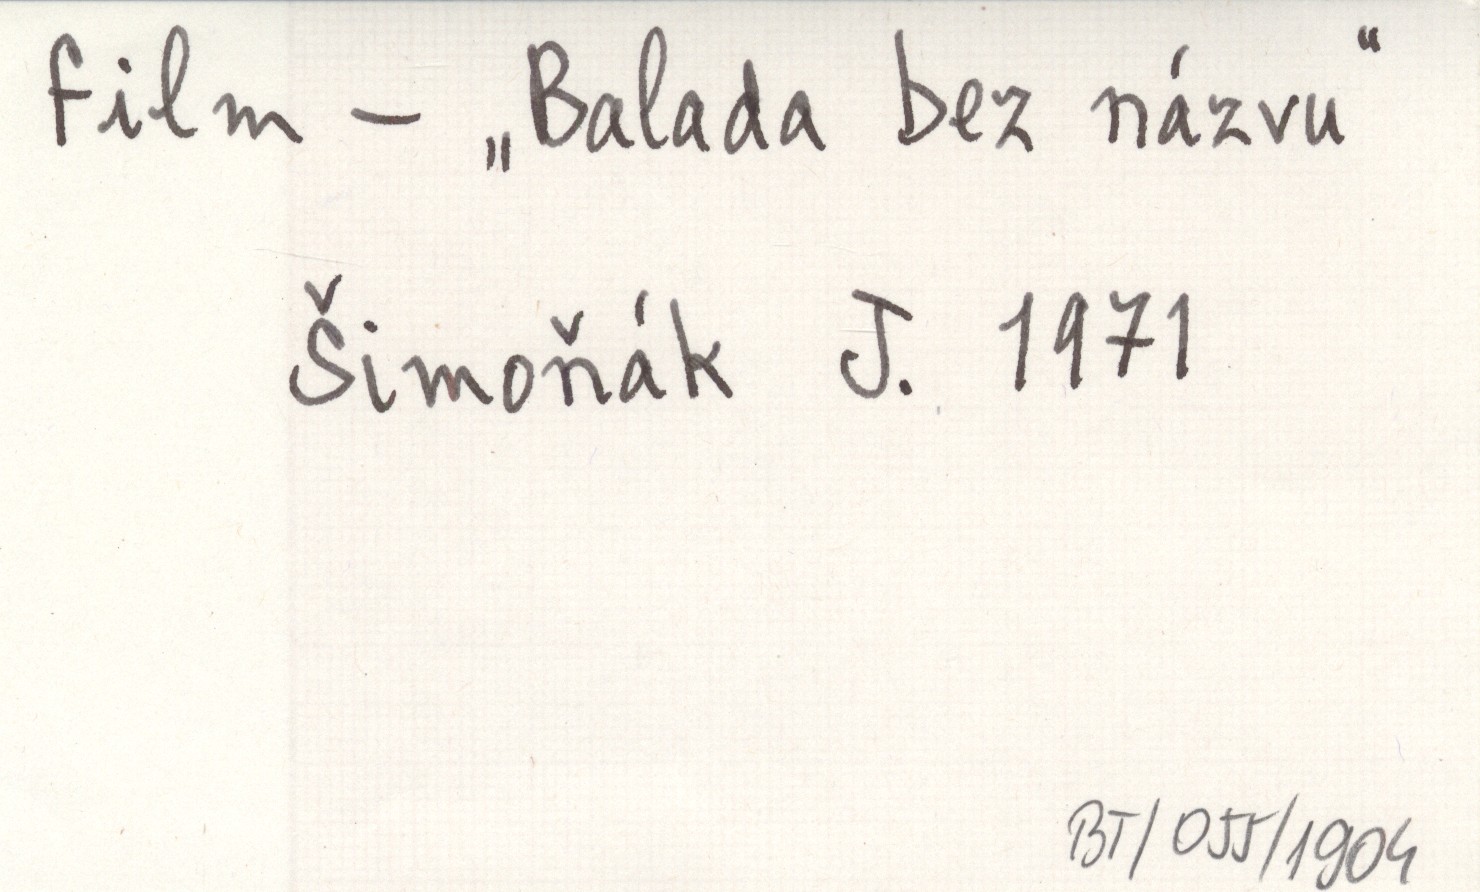 film – „Balada bez názvu“
Šimoňák J. 1971
BT/055/1904